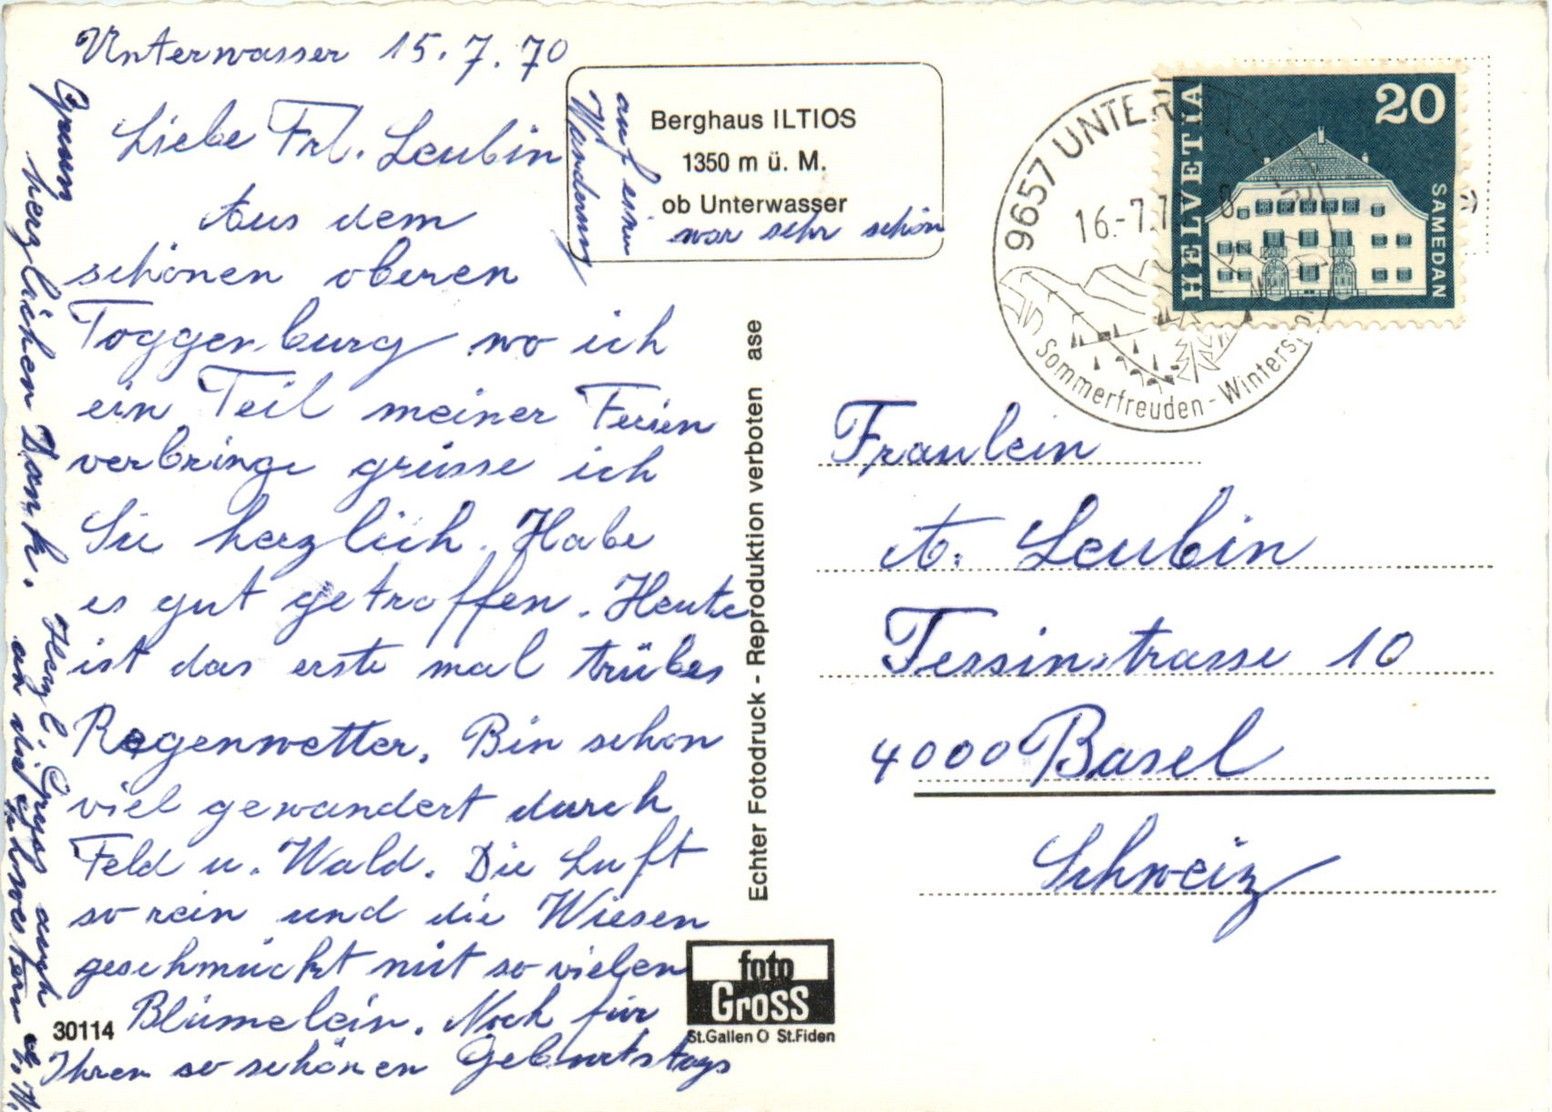 Unterwasser 15.7.70
Liebe Frl. Leubin
Aus dem
schönen oberen
Toggenburg wo ich
ein Teil meiner Ferien
verbringe grüsse ich
Sie herzlich. Habe
es gut getroffen. Heute
ist das erste mal trübes
Regenwetter. Bin schon
viel gewandert durch
Feld u. Wald. Die Luft
so rein und die Wiesen
geschmückt mit so vielen
Blümelein. Noch für
Ihren so schönen Geburtstags
Gruss
herzlichen Dank. Herzl. Gruss auch
an die Schwestern
auf einer
Wanderung
war sehr schön
Berghaus ILTIOS
1350 m ü. M.
ob Unterwasser
30114
Echter Fotodruck - Reproduktion verboten ase
foto
Gross
St.Gallen O St.Fiden
9657 UNTER
16.-7.7
Sommerfreuden - Winters
HELVETIA
20
SAMEDAN
Fraulein
A. Leubin
Tessinstrasse 10
4000 Basel
Schweiz